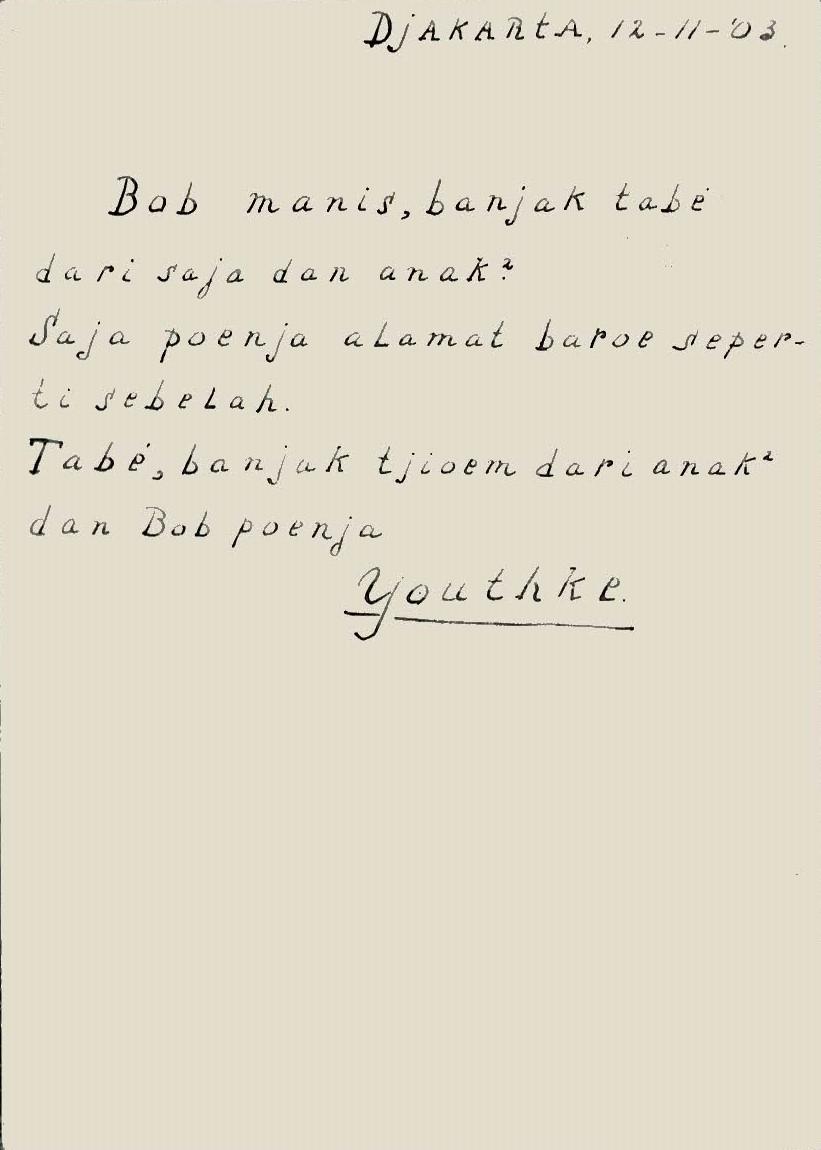 DjAKARtA, 12-11-'03.
Bob manis, banjak tabé
dari saja dan anak².
Saja poenja alamat baroe seper-
ti sebelah.
Tabé, banjak tjioem dari anak²
dan Bob poenja
Youthke.